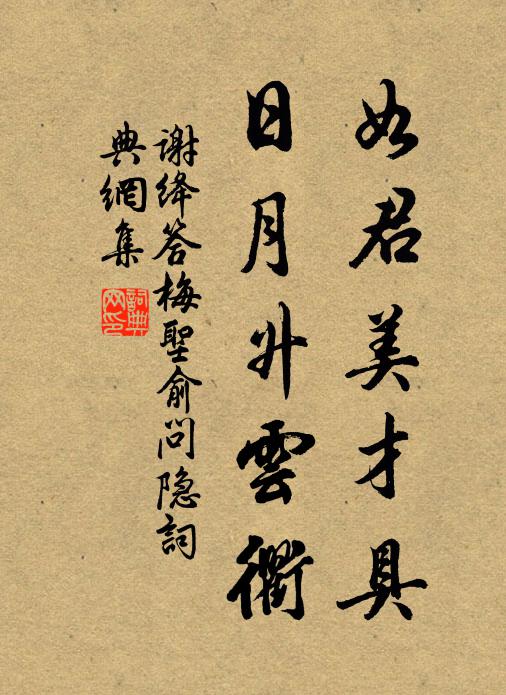 如君美才具
日月升雲衢
谢绛答梅聖俞问隐詞
典網集
詞典
网印